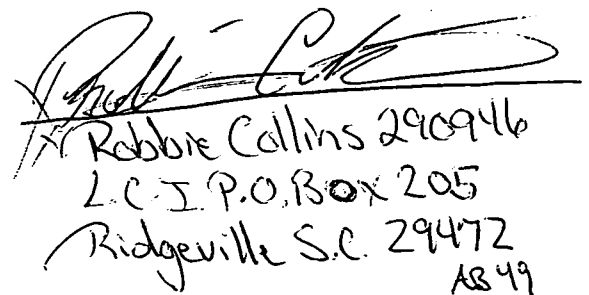 Robbie Collins 290946
L.C.I P.O. Box 205
Ridgeville S.C. 29472
AB 49